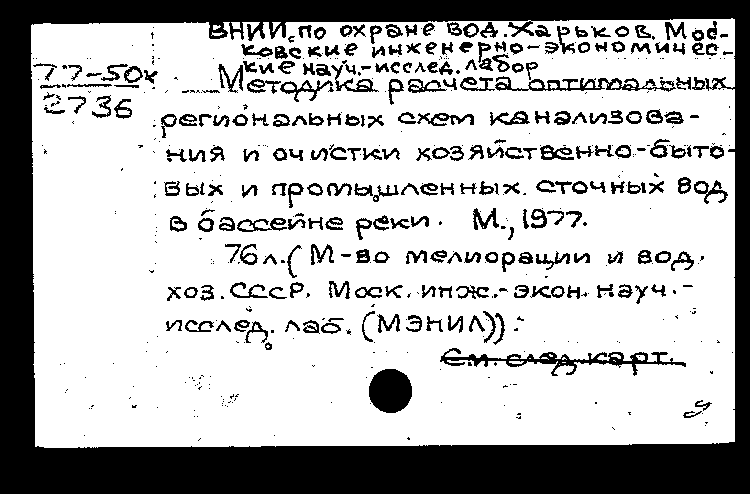 ВНИИ по охране вод. Харьков. Мос-
ковские инженерно-экономичес-
кие науч.-исслед. лабор
77-50к
2736
Методика расчета оптимальных
региональных схем канализова-
ния и очистки хозяйственно-быто-
вых и промышленных сточных вод
в бассейне реки. М., 1977.
76 л. (М-во мелиорации и вод.
хоз. СССР. Моск. инж.-экон. науч.-
исслед. лаб. (МЭНИЛ)).
См. след. карт.